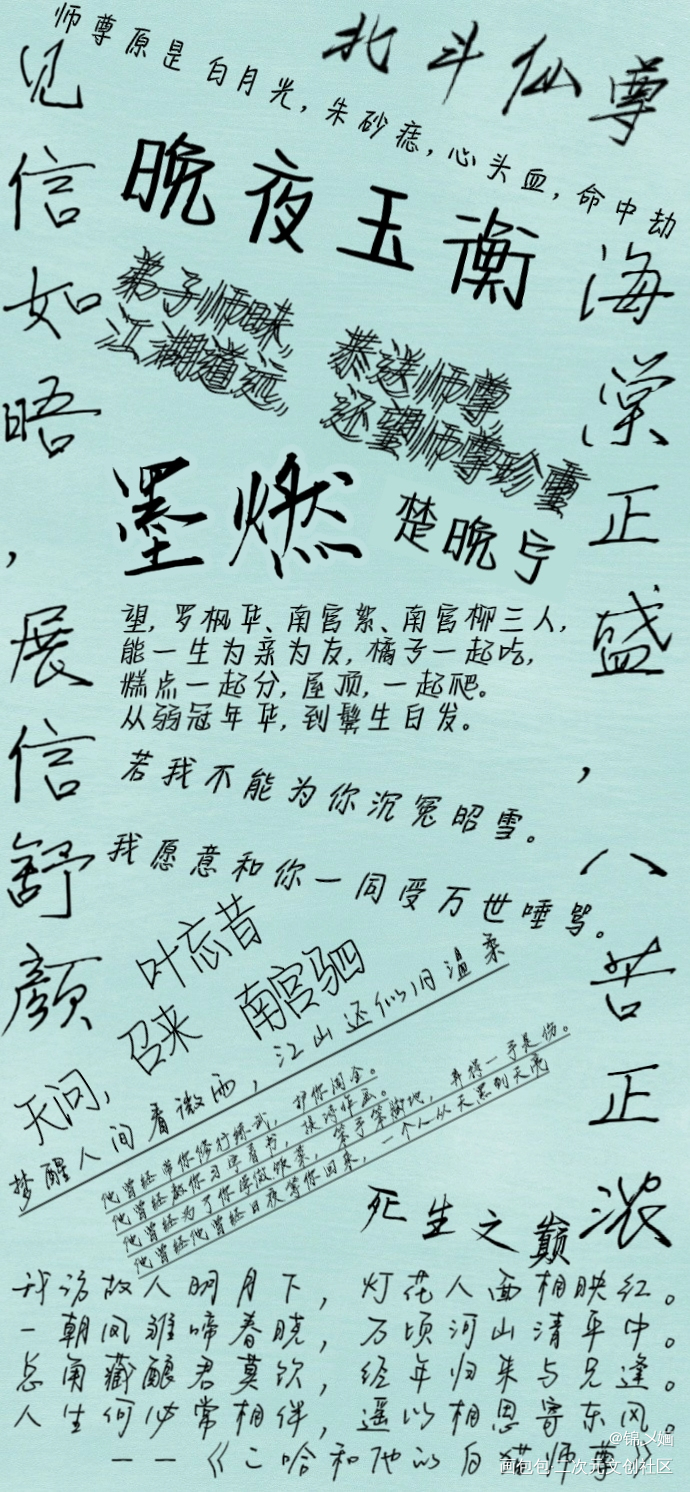 师尊原是白月光，朱砂痣，心头血，命中劫
北斗仙尊
晚夜玉衡
见信如晤，展信舒颜
海棠正盛，八苦正浓
弟子师昧，
江湖道远，
恭送师尊，
还望师尊珍重
墨燃
楚晚宁
望，罗枫华、南宫絮、南宫柳三人，
能一生为亲为友，橘子一起吃，
糕点一起分，屋顶，一起爬。
从弱冠年华，到鬓生白发。
若我不能为你沉冤昭雪。
我愿意和你一同受万世唾骂。
叶忘昔
南宫驷
天问，召来
梦醒人间看微雨，江山还似旧温柔
他曾经带你修行练武，护你周全。
他曾经教你习字看书，提诗作画。
他曾经为了你学做饭菜，笨手笨脚地，弄得一手是伤。
他曾经他曾经日夜等你回来，一个人从天黑到天亮
死生之巅
我访故人明月下，灯花人面相映红。
一朝风雅啼春晓，万顷河山清平中。
总角藏酿君莫饮，经年归来与兄逢。
人生何必常相伴，遥以相思寄东风。
——《二哈和他的白猫师尊》
@锦乄婳
面包包 二次元文创社区